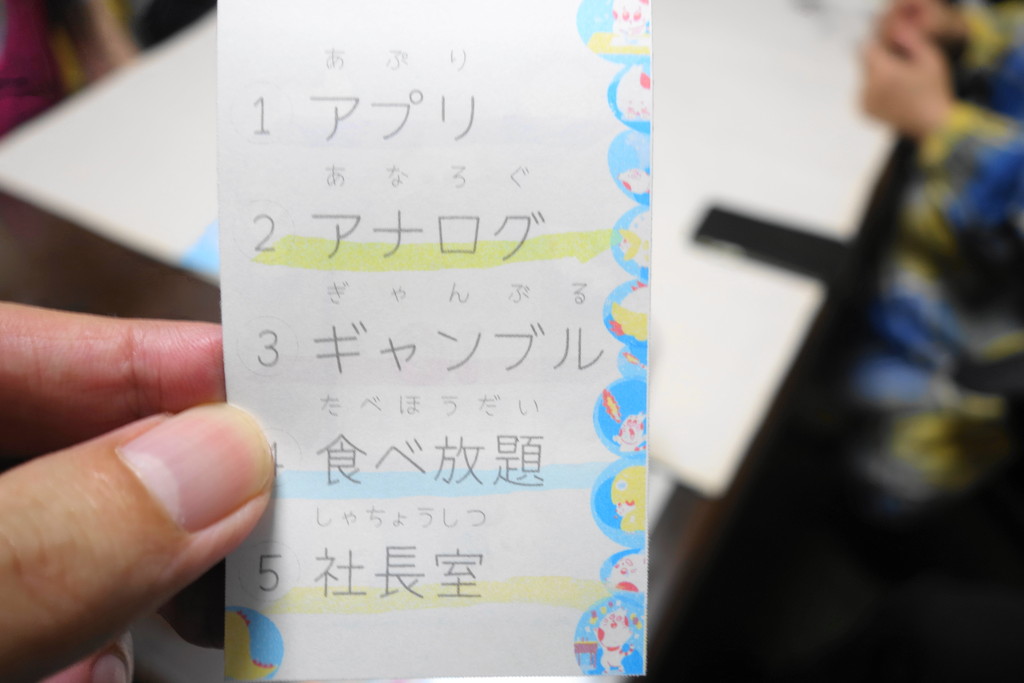 あぷり
1 アプリ
あなろぐ
2 アナログ
ぎゃんぶる
3 ギャンブル
たべほうだい
4 食べ放題
しゃちょうしつ
5 社長室